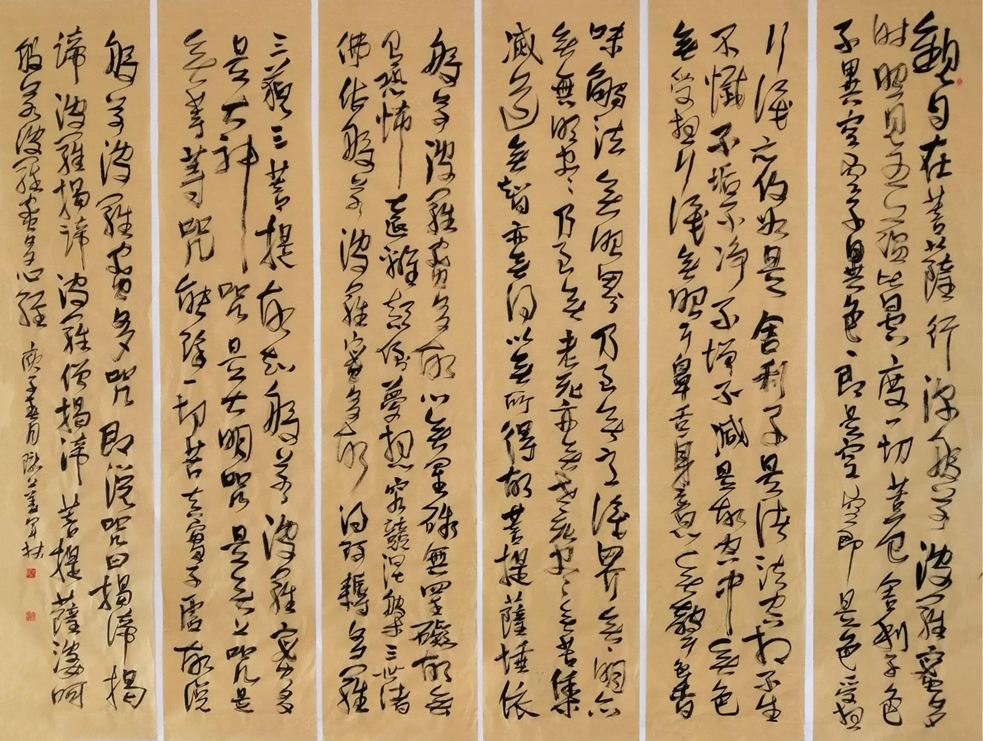 觀自在菩薩行深般若波羅蜜多
時照見五蘊皆空度一切苦厄舍利子色
不異空空不異色色即是空空即是色受想
行識亦復如是舍利子是諸法空相不生
不滅不垢不净不增不減是故空中無色
無受想行識無眼耳鼻舌身意無色聲香
味觸法無眼界乃至無意識界無無明亦
無無明盡乃至無老死亦無老死盡無苦集
滅道無智亦無得以無所得故菩提薩埵依
般若波羅蜜多故心無罣礙無罣礙故無
有恐怖遠離顛倒夢想究竟涅槃三世諸
佛依般若波羅蜜多故得阿耨多羅
三藐三菩提故知般若波羅蜜多
是大神咒是大明咒是無上咒是
無等等咒能除一切苦真實不虛故說
般若波羅蜜多咒即說咒曰揭諦揭
諦波羅揭諦波羅僧揭諦菩提薩婆呵
般若波羅蜜多心經 庚子五月